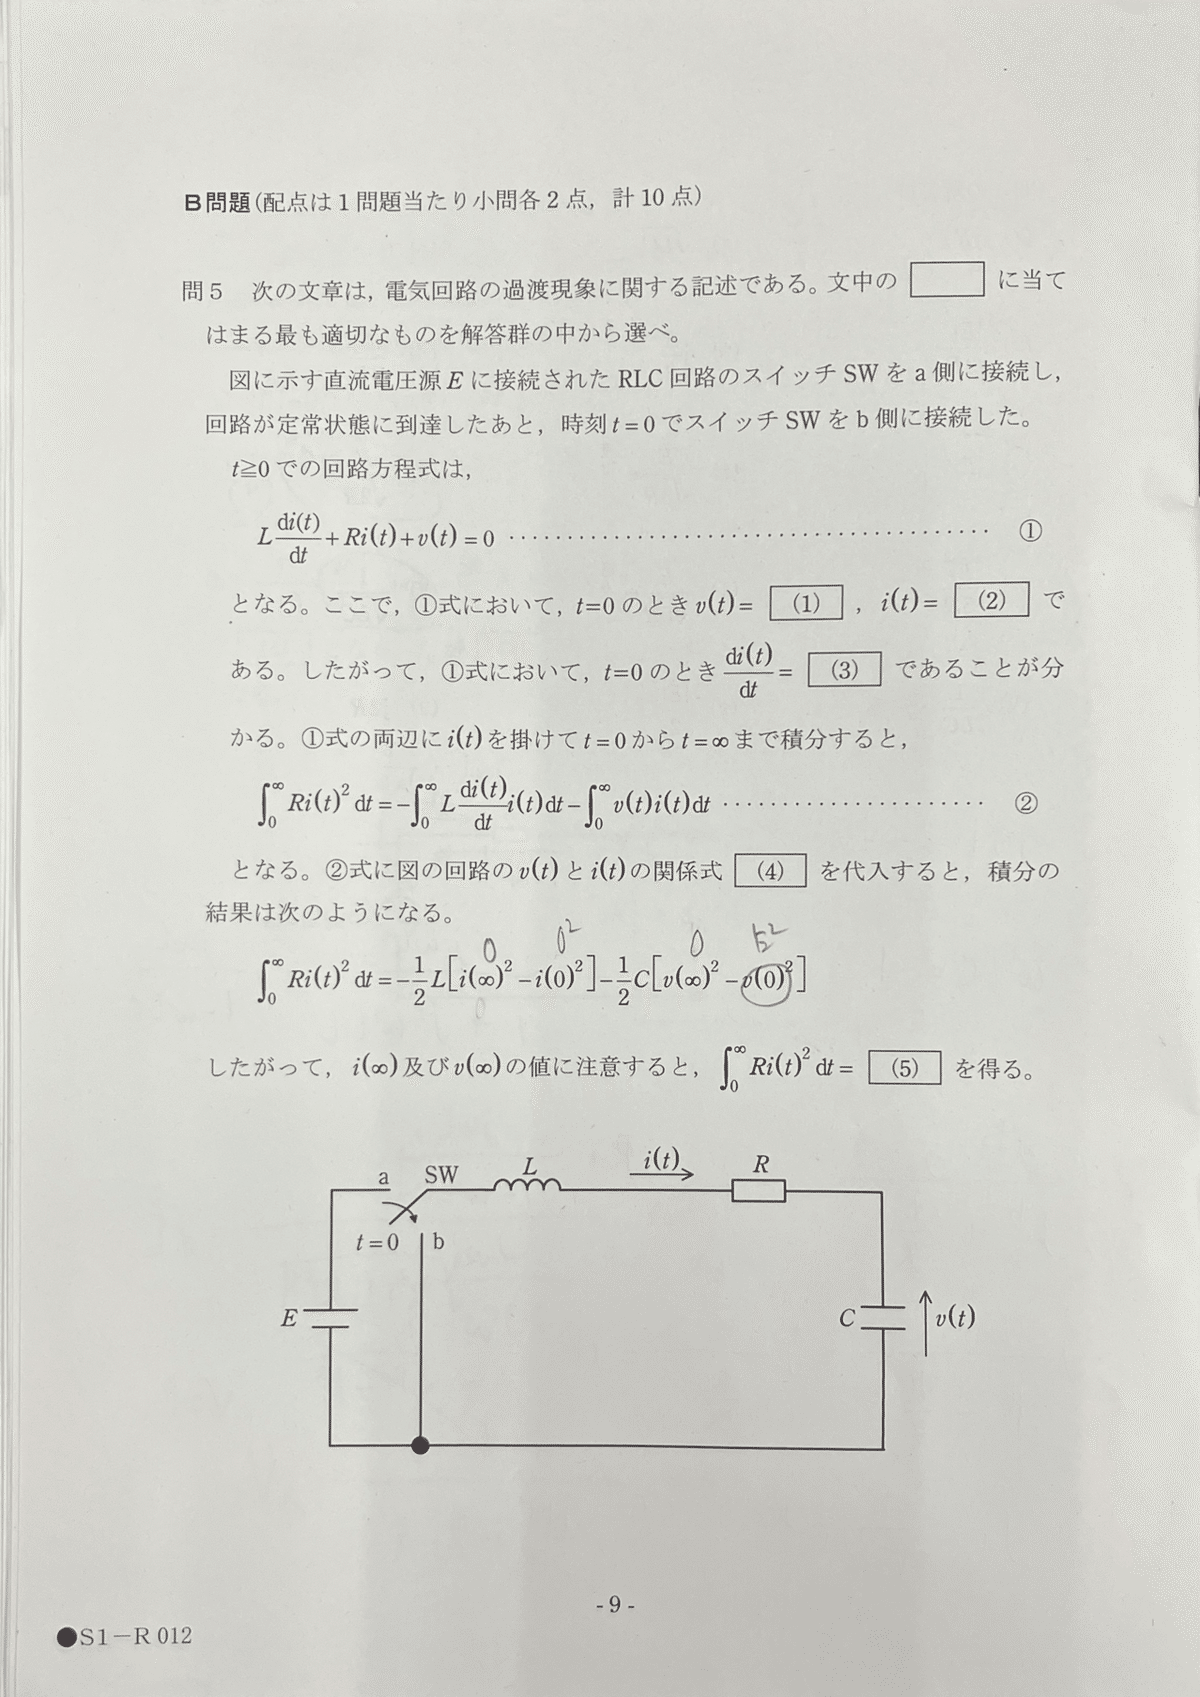 B問題(配点は1問題当たり小問各2点，計10点)
問5　次の文章は，電気回路の過渡現象に関する記述である。文中の □ に当て
はまる最も適切なものを解答群の中から選べ。
図に示す直流電圧源 E に接続された RLC 回路のスイッチ SW を a 側に接続し，
回路が定常状態に到達したあと，時刻 t = 0 でスイッチ SW を b 側に接続した。
t≧0 での回路方程式は，
L di(t)/dt + Ri(t) + v(t) = 0 ………………………………… ①
となる。ここで，①式において，t=0 のとき v(t) = (1) ，i(t) = (2) で
ある。したがって，①式において，t=0 のとき di(t)/dt = (3) であることが分
かる。①式の両辺に i(t) を掛けて t = 0 から t = ∞ まで積分すると，
∫₀^∞ Ri(t)² dt = −∫₀^∞ L di(t)/dt i(t)dt − ∫₀^∞ v(t)i(t)dt ………………… ②
となる。②式に図の回路の v(t) と i(t) の関係式 (4) を代入すると，積分の
結果は次のようになる。
0 0² 0 E²
∫₀^∞ Ri(t)² dt = −1/2 L[i(∞)² − i(0)²] − 1/2 C[v(∞)² − v(0)²]
したがって，i(∞) 及び v(∞) の値に注意すると，∫₀^∞ Ri(t)² dt = (5) を得る。
a SW L i(t) R
t = 0 b
E C v(t)
- 9 -
●S1－R 012